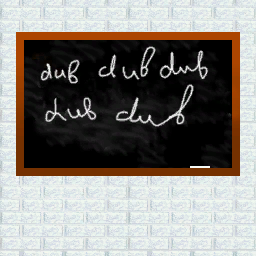 dub dub dub
dub dub